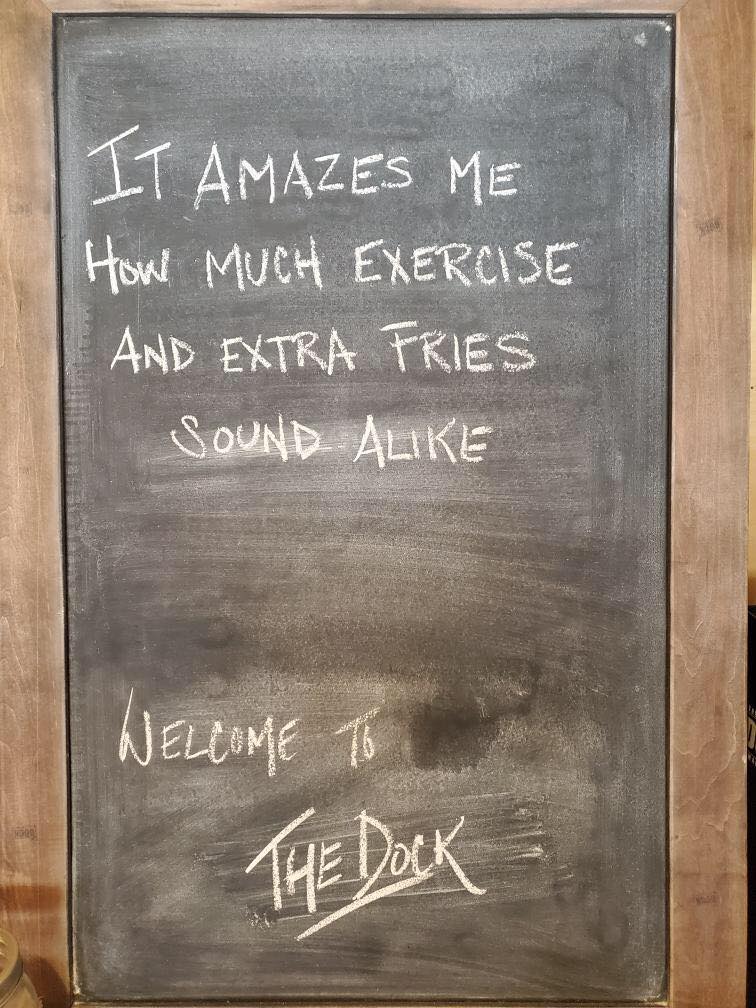 IT AMAZES ME
HOW MUCH EXERCISE
AND EXTRA FRIES
SOUND ALIKE
WELCOME TO
THE DOCK